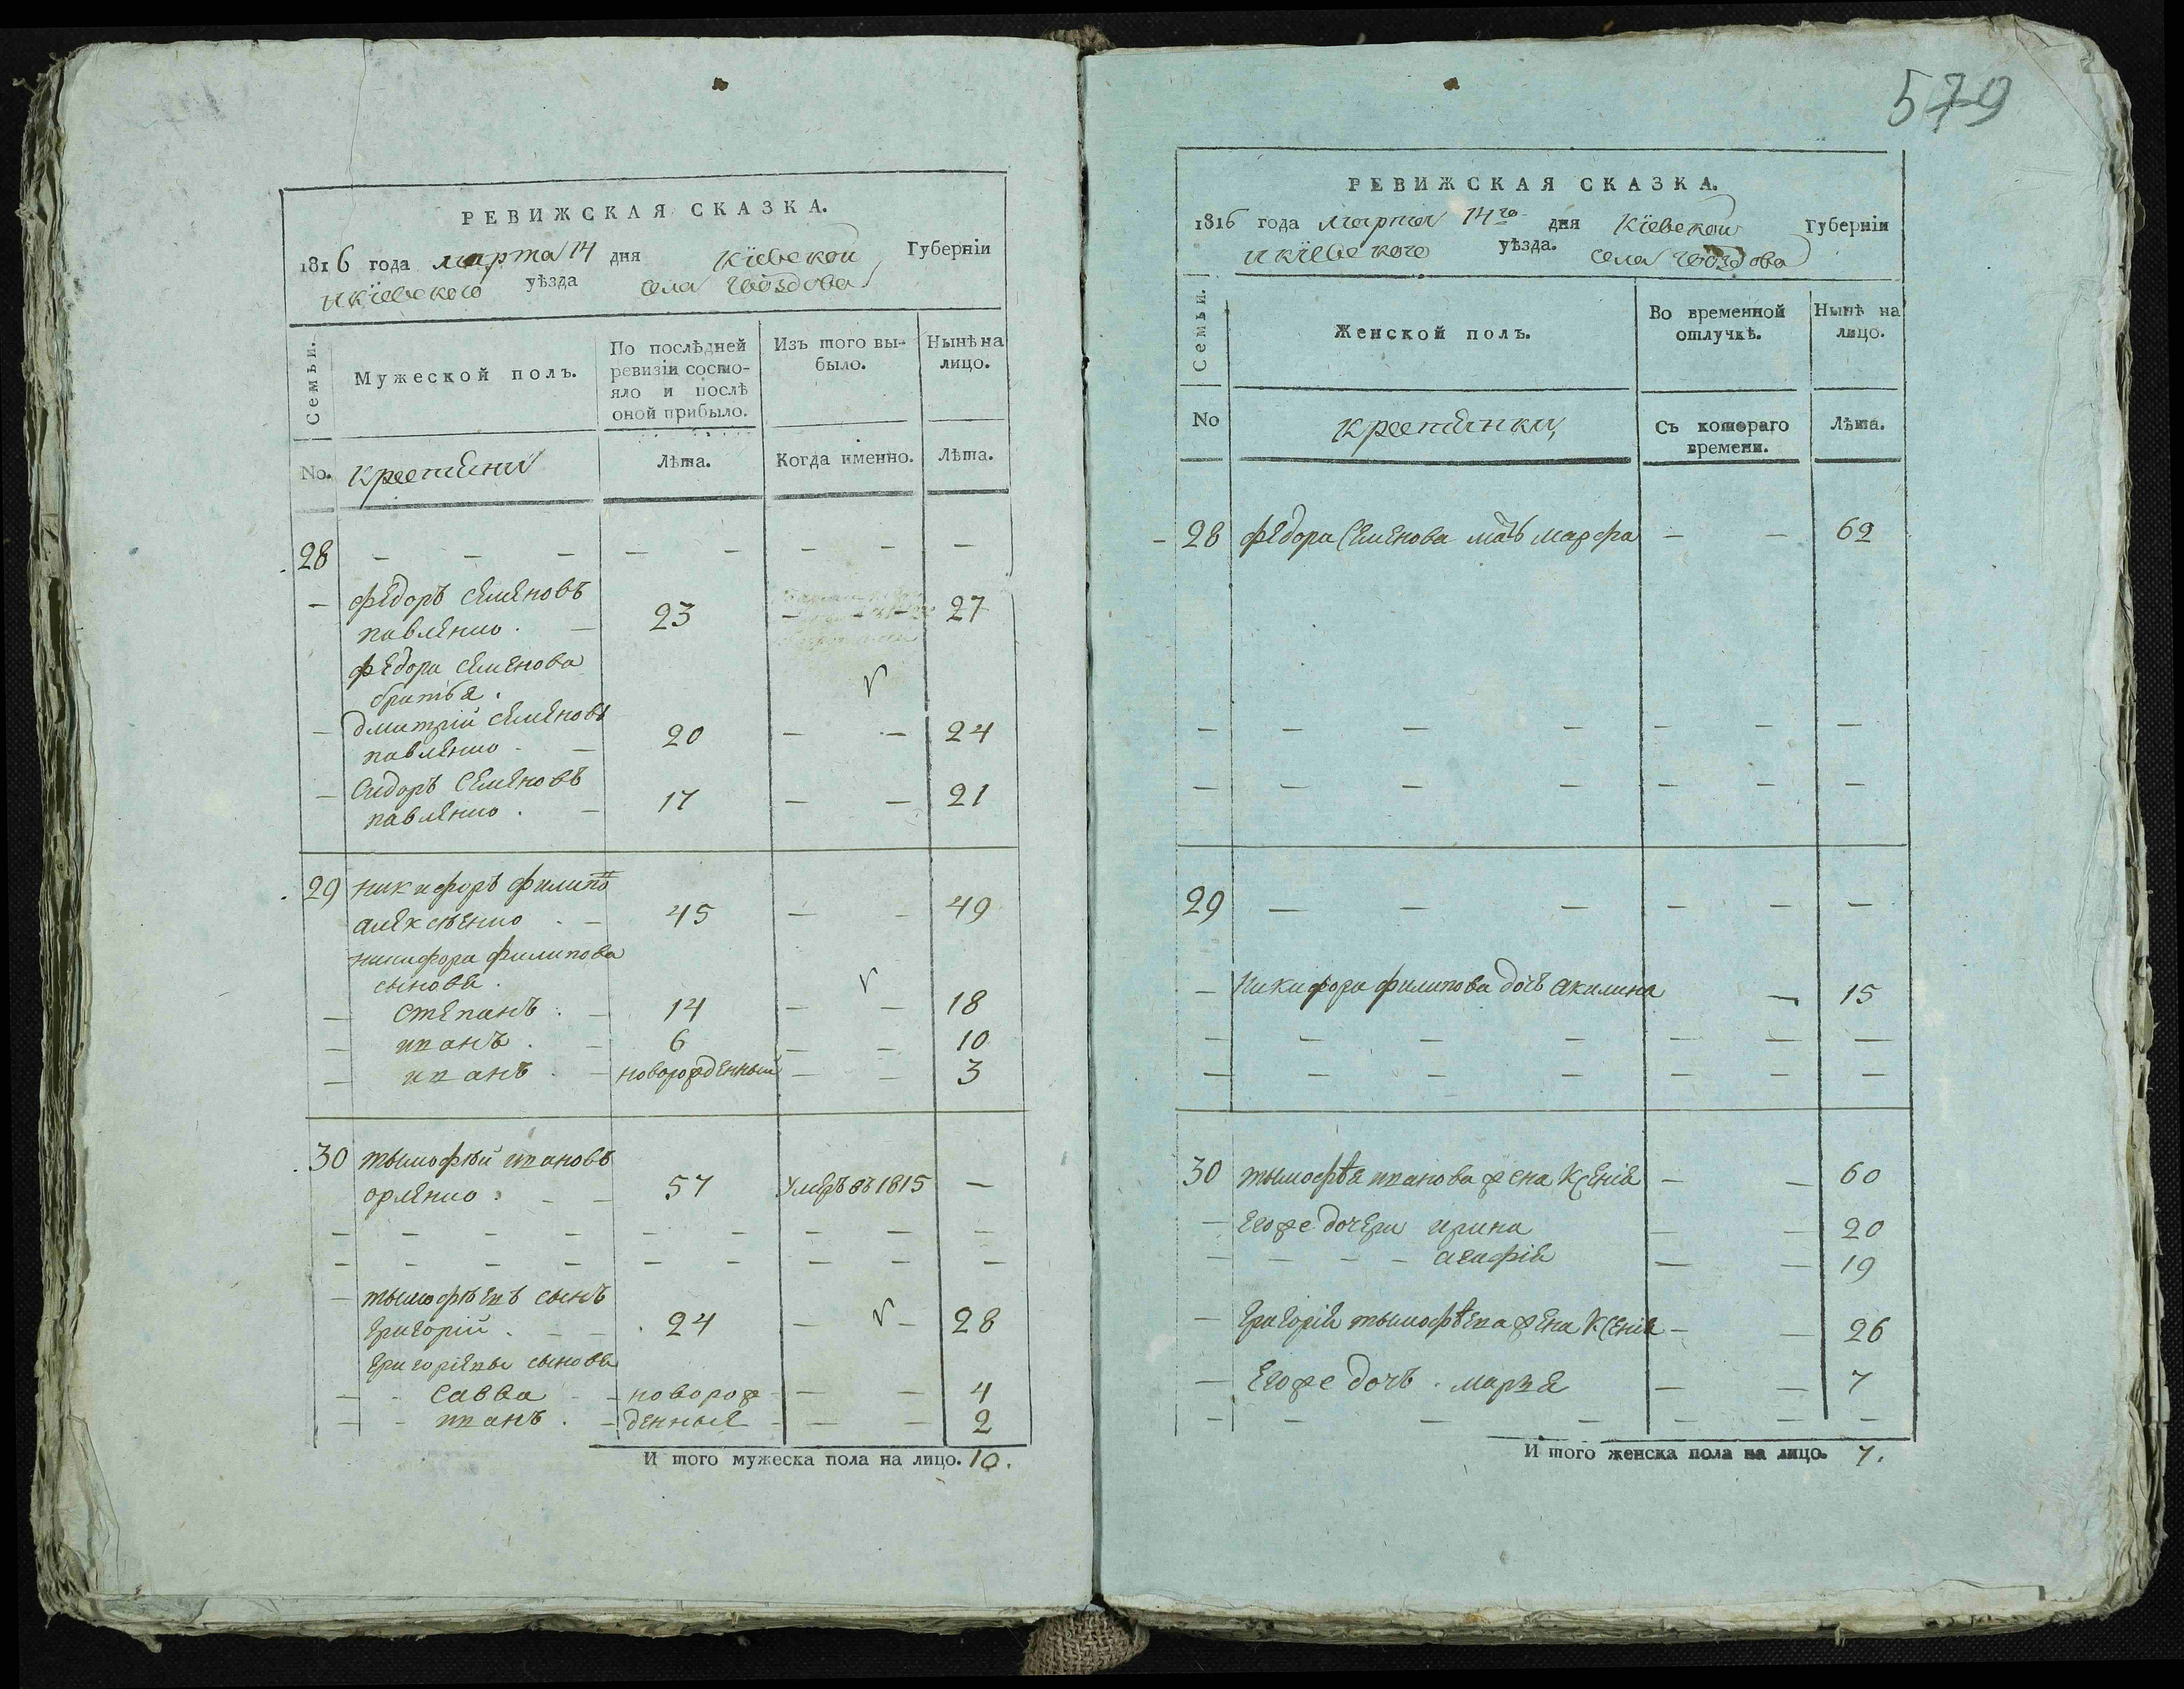 579
РЕВИЖСКАЯ СКАЗКА.
1816 года марта 14 дня Кіевской Губерніи
и кіевского уѣзда села Гвоздова
Семьи.
Мужеской полъ.
По послѣдней
ревизіи состо-
яло и послѣ
оной прибыло.
Изъ того вы-
было.
Нынѣ на
лицо.
No. крестяни Лѣта. Когда именно. Лѣта.
28 — — — — — — — —
— федоръ семеновъ
павленко. — 23 — — 27
федора семенова
братья.
— дмитрій семеновъ
павленко — 20 — — 24
— Сидоръ Семеновъ
павленко. — 17 — — 21
29 никифоръ филипо
алексѣенко — 45 — — 49
никифора филипова
сыновя.
— степанъ. — 14 — — 18
— иванъ. — 6 — — 10
— иванъ — новорожденный — — 3
30 тымофѣй ивановъ
орленко. — — 57 Умеръ въ 1815 —
— — — — — — — — —
— — — — — — — — —
— тымофѣевъ сынъ
григорій. — — 24 — — 28
григоріевы сыновя
— савва — новорож — — 4
— иванъ. — денныя — — 2
И того мужеска пола на лицо. 10.
РЕВИЖСКАЯ СКАЗКА.
1816 года марта 14го дня Кіевской Губерніи
и кіевского уѣзда. села Гвоздова
Семьи.
Женской полъ.
Во временной
отлучкѣ.
Нынѣ на
лицо.
No крестянки, Съ котораго
времени.
Лѣта.
— 28 федора Семенова мать марфа — — 62
— — — — — — —
— — — — — — —
29 — — — — — —
— никифора филипова дочъ акилина — 15
— — — — — — — —
— — — — — — — —
30 тымофѣя иванова жена Ксенія — — 60
— его же дочери ирина — — 20
— — — — агафія — — 19
— григорія тымофѣева жена Ксенія — — 26
— его же дочъ. марья — — 7
— — — — — — —
И того женска пола на лицо. 7.